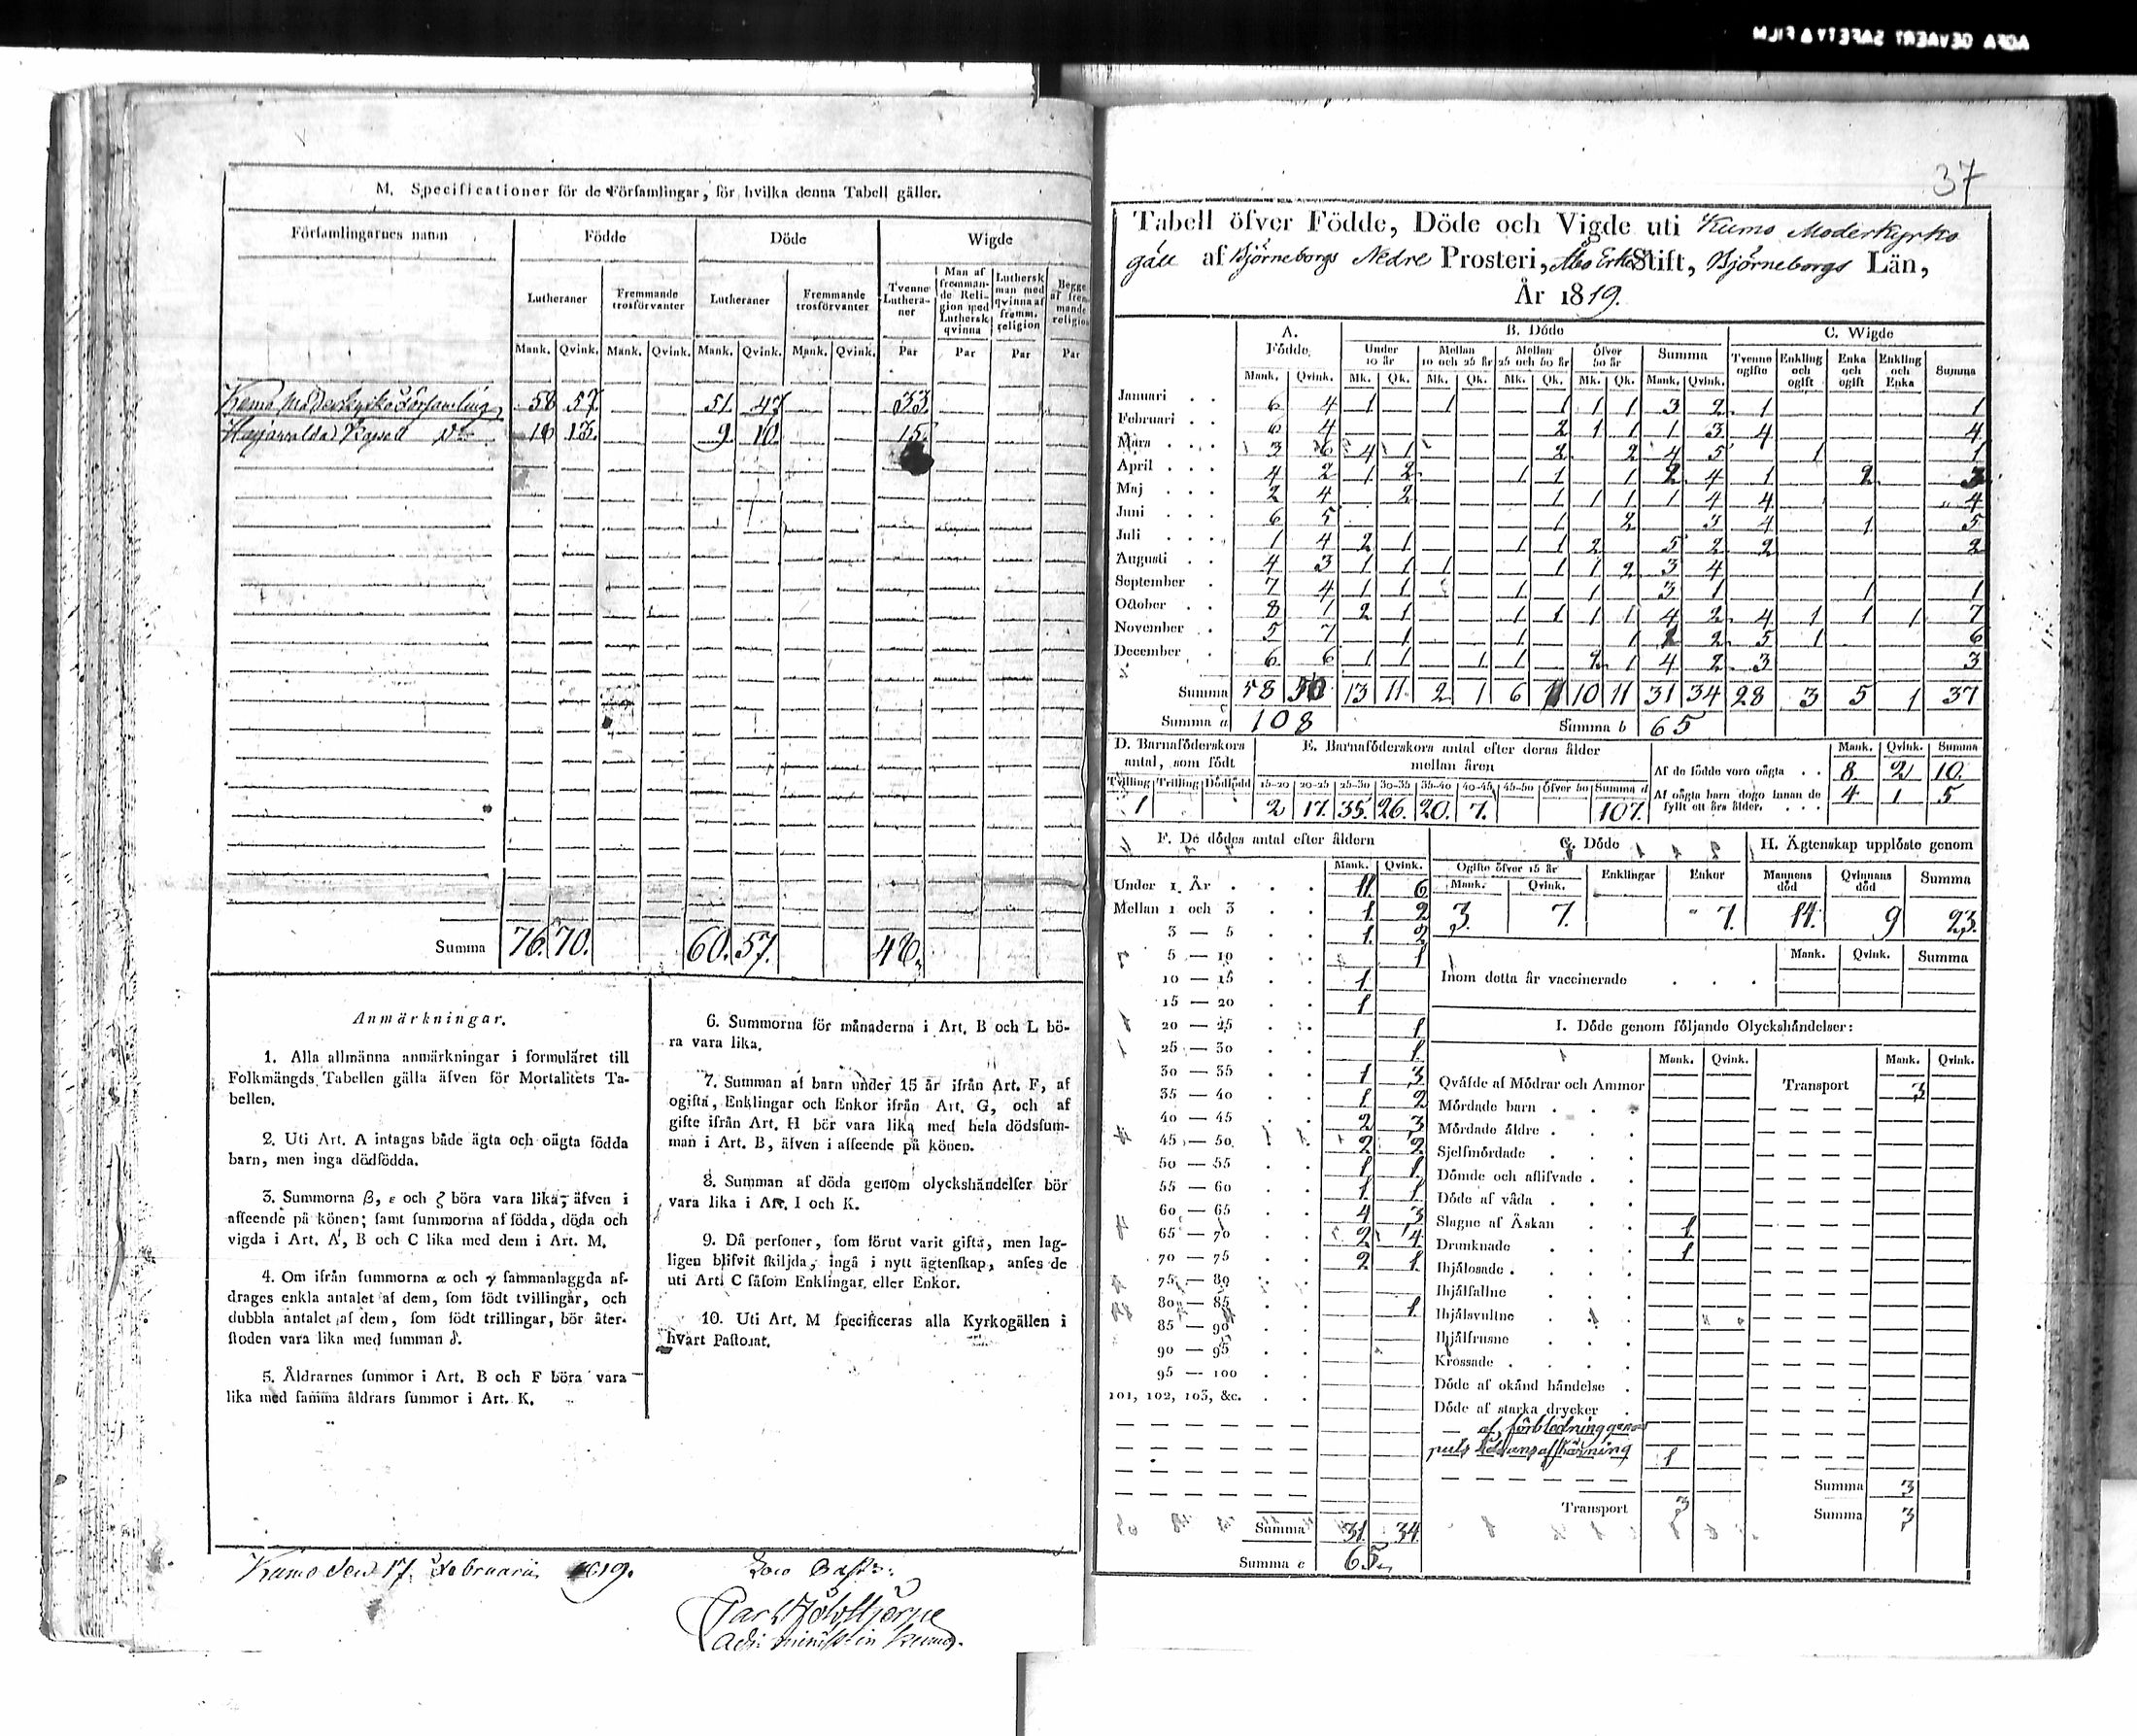 37
M. Specificationer för de Församlingar, för hvilka denna Tabell gäller.
Församlingarnes namn Födde Döde Wigde
Lutheraner Fremmande trosförvanter Lutheraner Fremmande trosförvanter Tvenne Lutheraner Man af fremmande Religion med Luthersk qvinna Luthersk man med qvinna af fremm. religion Begge af fremmande religion
Mank. Qvink. Mank. Qvink. Mank. Qvink. Mank. Qvink. Par Par Par Par
Kumo Moderkyrko församling 58 57 51 47 33
Kapell 18 13 9 10 15
Summa 76. 70. 60. 57. 48.
Anmärkningar.
1. Alla allmänna anmärkningar i formuläret till
Folkmängds Tabellen gälla äfven för Mortalitets Ta-
bellen.
2. Uti Art. A intagas både ägta och oägta födda
barn, men inga dödfödda.
3. Summorna β, ε och ζ böra vara lika, äfven i
afseende på könen; samt summorna af födda, döda och
vigda i Art. A, B och C lika med dem i Art. M.
4. Om ifrån summorna α och γ sammanlaggda af-
drages enkla antalet af dem, som födt tvillingar, och
dubbla antalet af dem, som födt trillingar, bör åter-
stoden vara lika med summan δ.
5. Åldrarnes summor i Art. B och F böra vara
lika med samma åldrars summor i Art. K.
6. Summorna för månaderna i Art. B och L bö-
ra vara lika.
7. Summan af barn under 15 år ifrån Art. F, af
ogifta, Enklingar och Enkor ifrån Art. G, och af
gifte ifrån Art. H bör vara lika med hela dödssum-
man i Art. B, äfven i afseende på könen.
8. Summan af döda genom olyckshändelser bör
vara lika i Art. I och K.
9. Då personer, som förut varit gifta, men lag-
ligen blifvit skiljda, ingå i nytt ägtenskap, anses de
uti Art. C såsom Enklingar eller Enkor.
10. Uti Art. M specificeras alla Kyrkogällen i
hvart Pastorat.
Kumo den 17 Februarii 1819.
Tabell öfver Födde, Döde och Vigde uti Kumo Moderkyrko
gäll af Björneborgs Nedre Prosteri, Åbo Erke Stift, Björneborgs Län,
År 1819.
A. Födde B. Döde C. Wigde
Under 10 år Mellan 10 och 25 år Mellan 25 och 50 år Öfver 50 år Summa Tvenne ogifte Enkling och ogift Enka och ogift Enkling och Enka Summa
Mank. Qvink. Mk. Qk. Mk. Qk. Mk. Qk. Mk. Qk. Mank. Qvink.
Januari 6 4 1 1 1 1 1 3 2 1 1
Februari 6 4 2 1 1 1 3 4 4
Mars 3 6 4 1 2 2 4 5 1 1
April 4 2 1 2 1 1 1 2 4 1 2 3
Maj 2 4 2 1 1 1 1 4 4 4
Juni 6 5 1 2 3 4 1 5
Juli 1 4 2 1 1 1 2 5 2 2 2
Augusti 4 3 1 1 1 1 1 2 3 4
September 7 4 1 1 1 1 3 1 1 1
October 8 1 2 1 1 1 1 1 4 2 4 1 1 1 7
November 5 7 1 1 1 1 2 5 1 6
December 6 6 1 1 1 1 2 1 4 2 3 3
Summa 58 50 13 11 2 1 6 11 10 11 31 34 28 3 5 1 37
Summa a 108 Summa b 65
D. Barnaföderskors antal, som födt E. Barnaföderskors antal efter deras ålder mellan åren Mank. Qvink. Summa
Tvilling Trilling Dödfödd 15-20 20-25 25-30 30-35 35-40 40-45 45-50 öfver 50 Summa d
1 2 17. 35. 26. 20. 7. 107.
Af de födde voro oägta 8 2 10.
Af oägta barn dogo innan de fyllt ett års ålder. 4 1 5
F. De dödes antal efter åldern
Mank. Qvink.
Under 1 År 11. 6
Mellan 1 och 3 1. 2
3 — 5 1. 2
5 — 10 1
10 — 15 1.
15 — 20 1
20 — 25 1
25 — 30 1.
30 — 35 1 3
35 — 40 1. 2
40 — 45 2 3
45 — 50 2 2
50 — 55 1 1.
55 — 60 1. 1
60 — 65 4 3
65 — 70 2 4
70 — 75 2 1.
75 — 80
80 — 85 1.
85 — 90
90 — 95
95 — 100
101, 102, 103, &c.
Summa 31 34
Summa c 65
G. Döde H. Ägtenskap upplöste genom
Ogifte öfver 15 år Enklingar Enkor Mannens död Qvinnans död Summa
Mank. Qvink.
3. 7. 7. 14. 9 23.
Mank. Qvink. Summa
Inom detta år vaccinerade
I. Döde genom följande Olyckshändelser:
Mank. Qvink. Mank. Qvink.
Qväfde af Mödrar och Ammor Transport 3
Mördade barn
Mördade äldre
Sjelfmördade
Dömde och aflifvade
Döde af våda
Slagne af Åskan 1
Drunknade 1
Ihjälosade
Ihjälfallne
Ihjälsvultne
Ihjälfrusne
Krossade
Döde af okänd händelse
Döde af starka drycker
af förblödning genom
puls ådrans afskärning 1
Summa 3
Transport 3 Summa 3